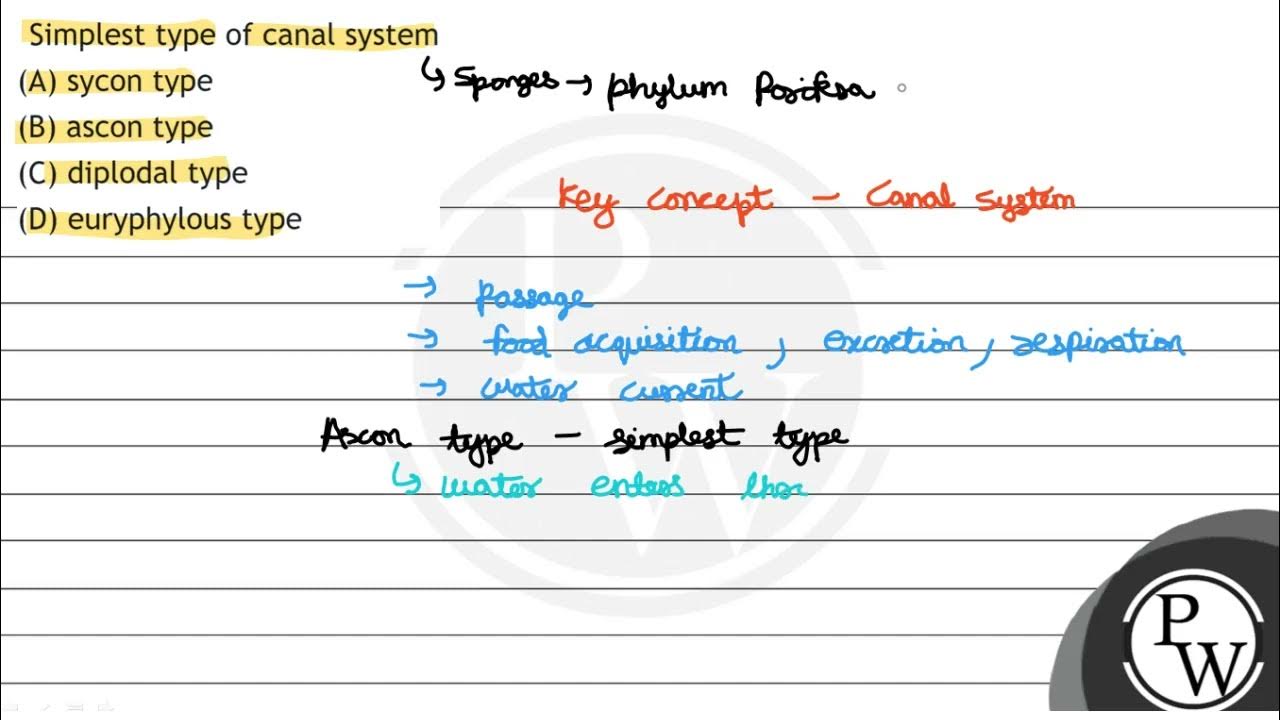 Simplest type of canal system
(A) sycon type
(B) ascon type
(C) diplodal type
(D) euryphylous type
↳ Sponges → phylum Porifera
Key concept – Canal system
→ passage
→ food acquisition, excretion, respiration
→ water current
Ascon type – simplest type
↳ water enters
PW
PW